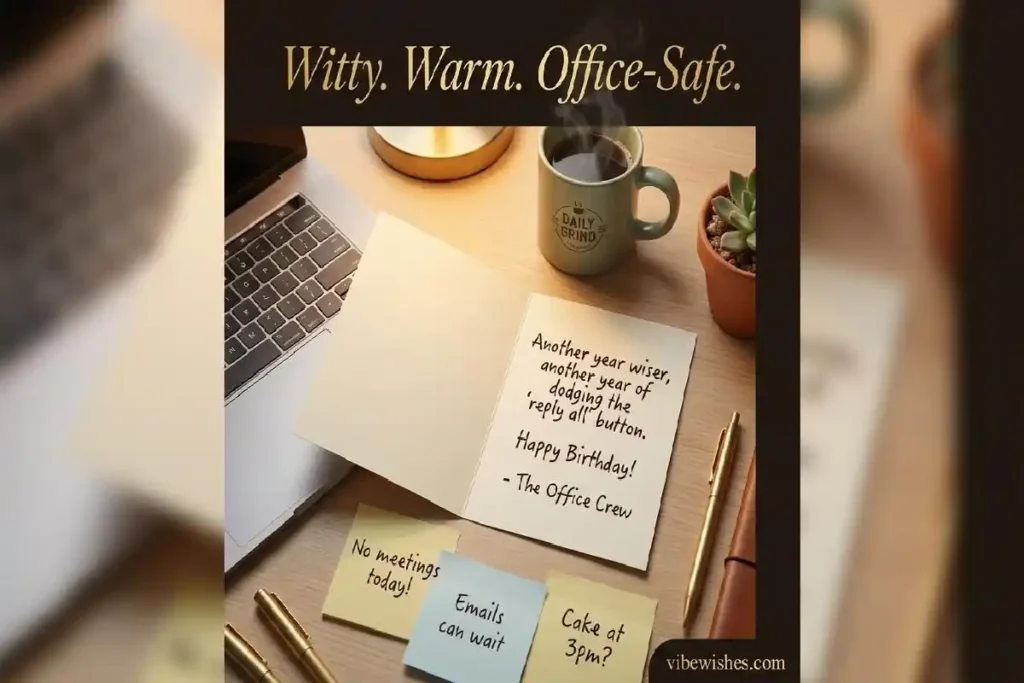 Witty. Warm. Office-Safe.
DAILY
GRIND
Another year wiser,
another year of
dodging the
'reply all' button.
Happy Birthday!
- The Office Crew
No meetings
today!
Emails
can wait
Cake at
3pm?
vibewishes.com